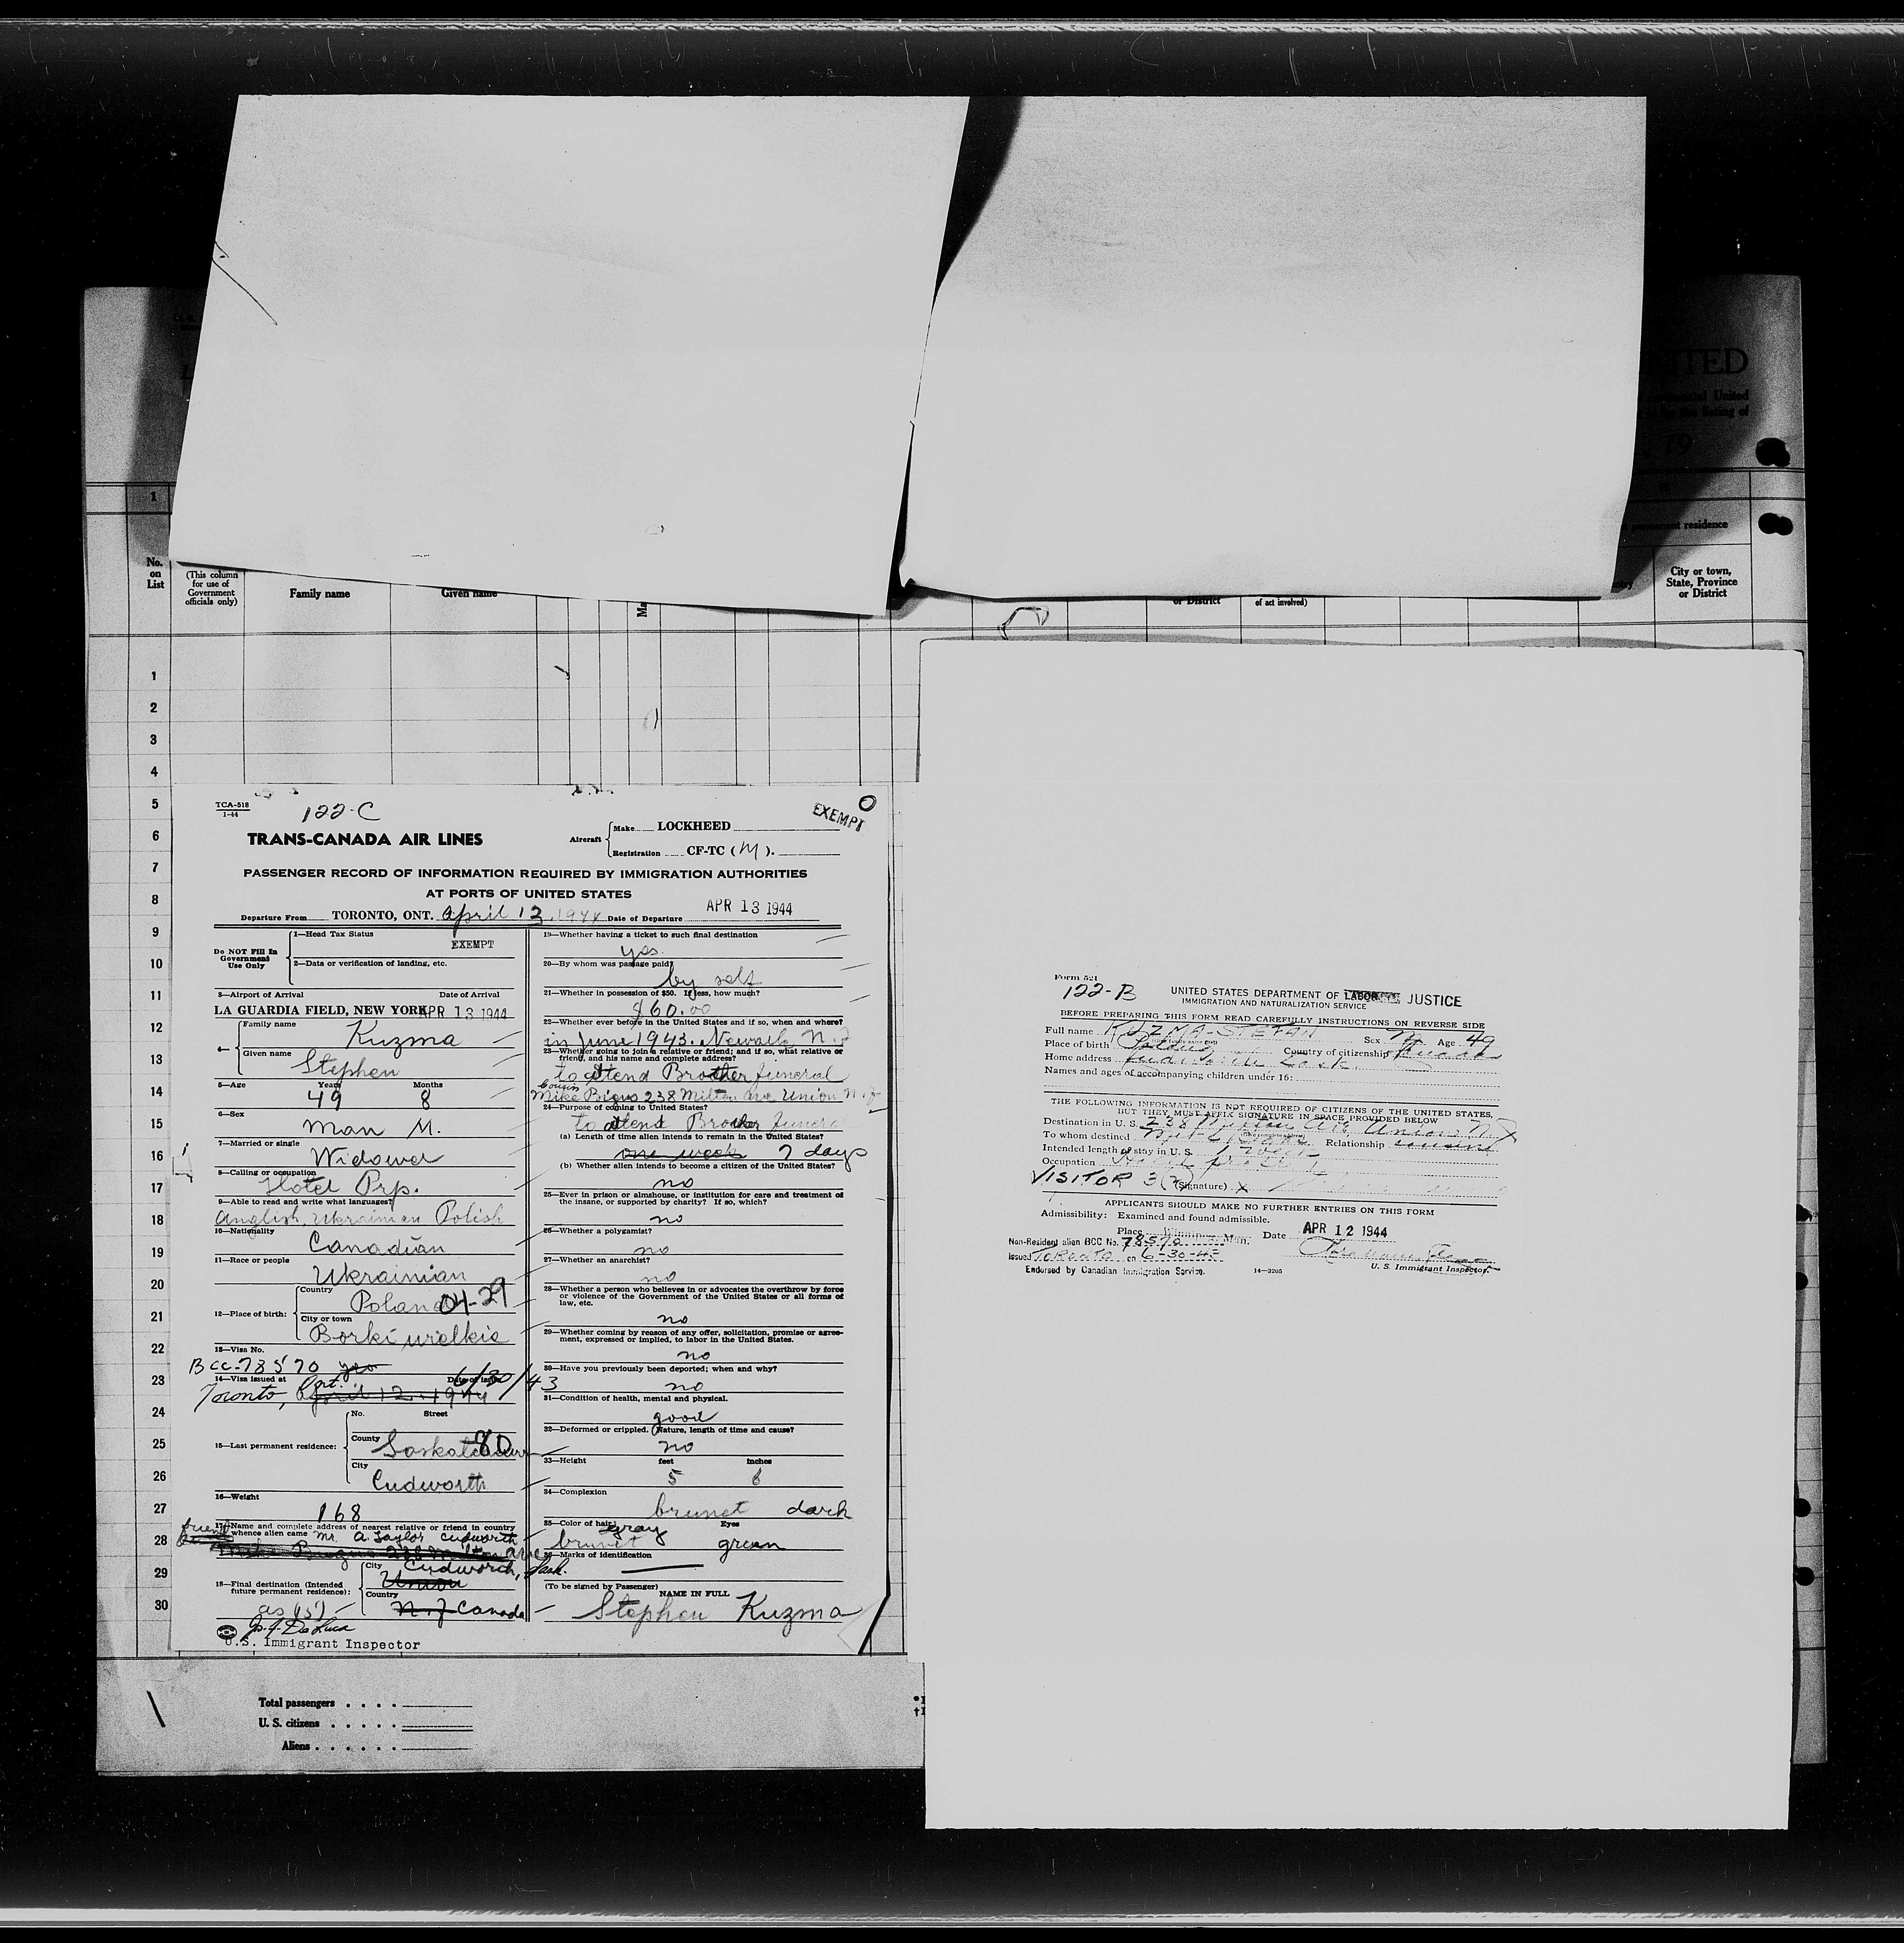 ITED
1
No.
on
List
(This column
for use of
Government
officials only)
Family name
Given name
Ma
or District
of act involved)
residence
City or town,
State, Province
or District
1
2
3
4
5
6
7
8
9
10
11
12
13
14
15
16
17
18
19
20
21
22
23
24
25
26
27
28
29
30
TCA-518
1-44
122-C
EXEMPT
TRANS-CANADA AIR LINES
Aircraft
Make LOCKHEED
Registration CF-TC (M).
PASSENGER RECORD OF INFORMATION REQUIRED BY IMMIGRATION AUTHORITIES
AT PORTS OF UNITED STATES
Departure From TORONTO, ONT. April 13, 1944 Date of Departure APR 13 1944
Do NOT Fill In
Government
Use Only
1—Head Tax Status
EXEMPT
2—Data or verification of landing, etc.
3—Airport of Arrival Date of Arrival
LA GUARDIA FIELD, NEW YORK APR 13 1944
4—
Family name Kuzma
Given name Stephen
5—Age Years Months
49 8
6—Sex
Man M.
7—Married or single
Widower
8—Calling or occupation
Hotel Prp.
9—Able to read and write what languages?
Anglish, Ukrainian Polish
10—Nationality
Canadian
11—Race or people
Ukrainian
12—Place of birth:
Country
Poland 04-29
City or town
Borki wielkie
13—Visa No.
BCC-78570 yes
14—Visa issued at Date of issue
Toronto, Ont. April 12 1944 6/30/43
15—Last permanent residence:
No. Street
County
Saskatchewan 80
City
Cudworth
16—Weight
168
17—Name and complete address of nearest relative or friend in country
whence alien came Mr. A Taylor Cudworth
friend
Cudworth, Sask.
18—Final destination (Intended
future permanent residence):
City
Union
Country
N.J. Canada
as (15)
U.S. Immigrant Inspector
19—Whether having a ticket to such final destination
yes.
20—By whom was passage paid?
by self
21—Whether in possession of $50. If less, how much?
$60.00
22—Whether ever before in the United States and if so, when and where?
in June 1943. Newark N.J
23—Whether going to join a relative or friend; and if so, what relative or
friend, and his name and complete address?
to attend Brother funeral
Cousin
Mike 238 Milton ave Union N.J
24—Purpose of coming to United States?
to attend Brother funeral
(a) Length of time alien intends to remain in the United States?
one week 7 days
(b) Whether alien intends to become a citizen of the United States?
no
25—Ever in prison or almshouse, or institution for care and treatment of
the insane, or supported by charity? If so, which?
no
26—Whether a polygamist?
no
27—Whether an anarchist?
no
28—Whether a person who believes in or advocates the overthrow by force
or violence of the Government of the United States or all forms of
law, etc.
no
29—Whether coming by reason of any offer, solicitation, promise or agree-
ment, expressed or implied, to labor in the United States.
no
30—Have you previously been deported; when and why?
no
31—Condition of health, mental and physical.
good
32—Deformed or crippled. (Nature, length of time and cause?
no
33—Height feet inches
5 6
34—Complexion
brunet dark
35—Color of hair Eyes
brunet gray green
36—Marks of identification
(To be signed by Passenger) NAME IN FULL
Stephen Kuzma
Total passengers
U. S. citizens
Aliens
Form 521
122-B
UNITED STATES DEPARTMENT OF LABOR JUSTICE
IMMIGRATION AND NATURALIZATION SERVICE
BEFORE PREPARING THIS FORM READ CAREFULLY INSTRUCTIONS ON REVERSE SIDE
Full name KUZMA-STEFAN Sex M Age 49
Place of birth Poland Country of citizenship Canada
Home address Cudworth Sask.
Names and ages of accompanying children under 16:
THE FOLLOWING INFORMATION IS NOT REQUIRED OF CITIZENS OF THE UNITED STATES,
BUT THEY MUST AFFIX SIGNATURE IN SPACE PROVIDED BELOW
Destination in U.S. 238 Milton Ave, Union N.J
To whom destined Relationship cousin
Intended length of stay in U.S. 1 week
Occupation Hotel
VISITOR 3(2) (Signature) X
APPLICANTS SHOULD MAKE NO FURTHER ENTRIES ON THIS FORM
Admissibility: Examined and found admissible.
Place Winnipeg Man. Date APR 12 1944
Non-Resident alien BCC No. 78570
Issued TORONTO on 6-30-43
Endorsed by Canadian Immigration Service.
14—3205
U. S. Immigrant Inspector.